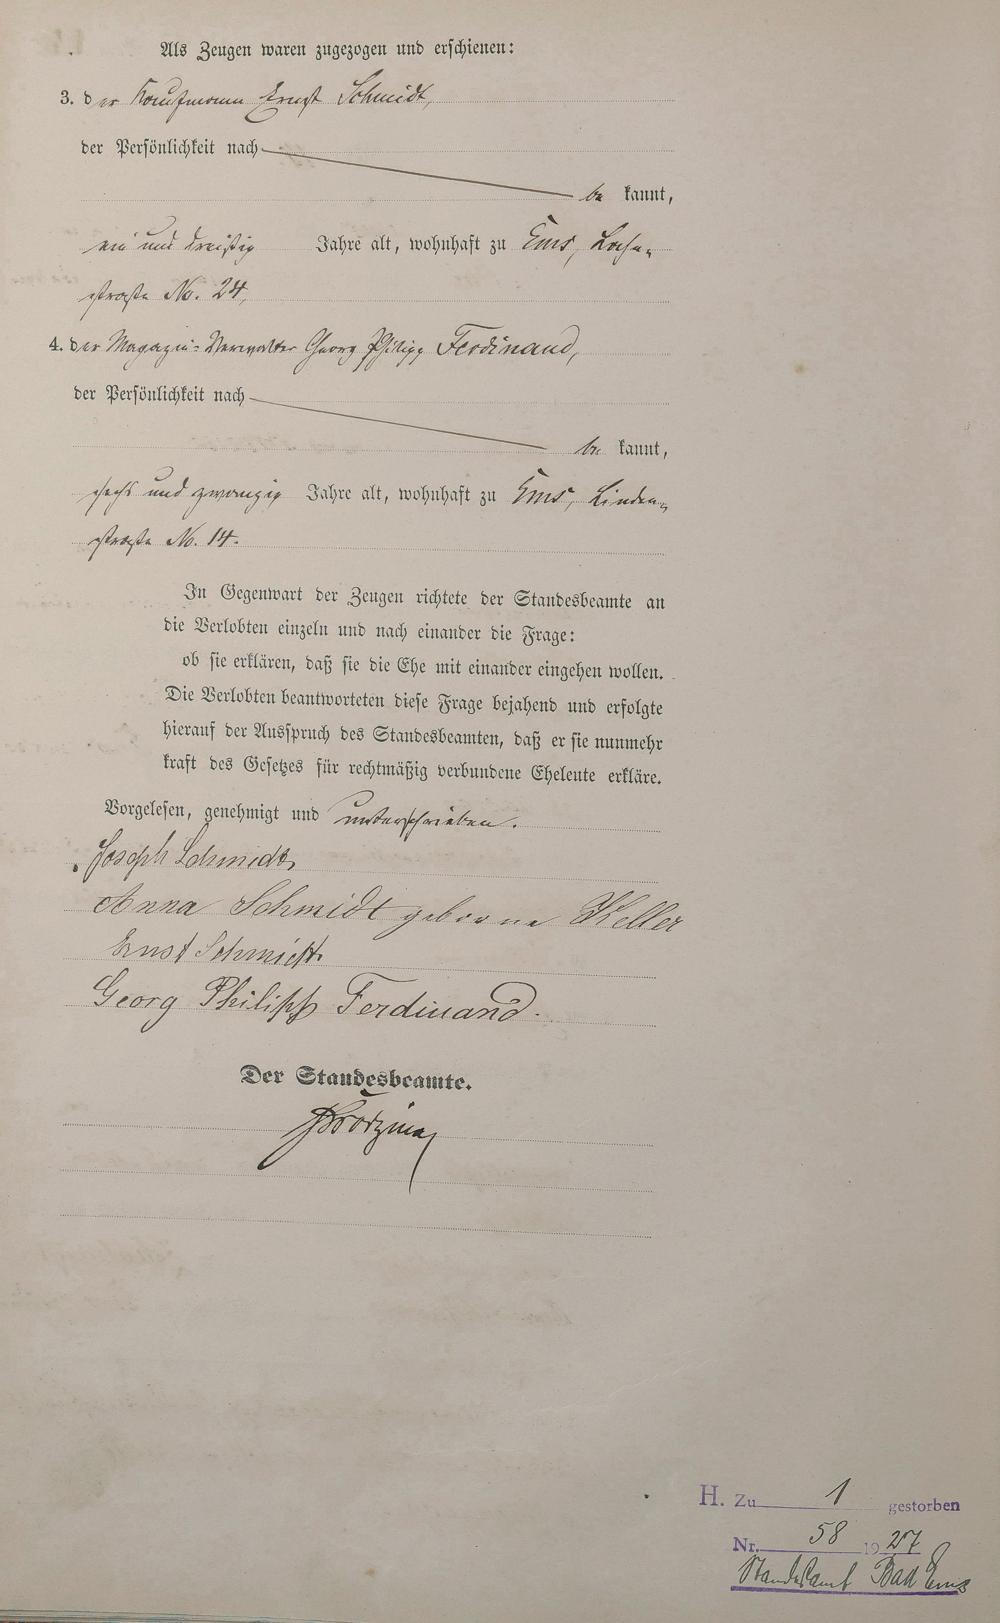 Als Zeugen waren zugezogen und erschienen:
3. der Kaufmann Ernst Schmidt,
der Persönlichkeit nach
be kannt,
ein und dreißig Jahre alt, wohnhaft zu Ems, Lahn-
straße No. 24,
4. der Magazin-Verwalter Georg Philipp Ferdinand,
der Persönlichkeit nach
be kannt,
sechs und zwanzig Jahre alt, wohnhaft zu Ems, Linden-
straße No. 14.
In Gegenwart der Zeugen richtete der Standesbeamte an
die Verlobten einzeln und nach einander die Frage:
ob sie erklären, daß sie die Ehe mit einander eingehen wollen.
Die Verlobten beantworteten diese Frage bejahend und erfolgte
hierauf der Ausspruch des Standesbeamten, daß er sie nunmehr
kraft des Gesetzes für rechtmäßig verbundene Eheleute erkläre.
Vorgelesen, genehmigt und unterschrieben.
Joseph Schmidt
Anna Schmidt geborne Keller
Ernst Schmidt
Georg Philipp Ferdinand.
Der Standesbeamte.
H. Zu 1 gestorben
Nr. 58 1927
Standesamt Bad Ems